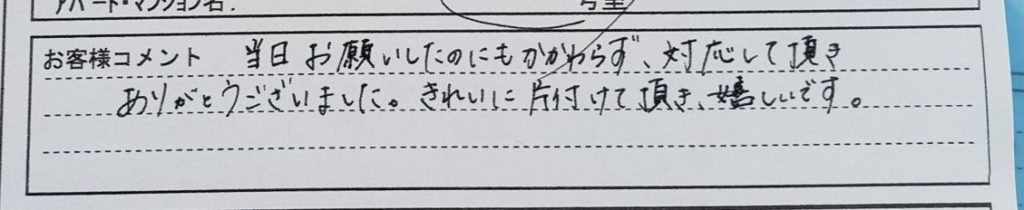 アパート・マンション名: 号室
お客様コメント 当日お願いしたのにもかかわらず、対応して頂き
ありがとうございました。きれいに片付けて頂き、嬉しいです。